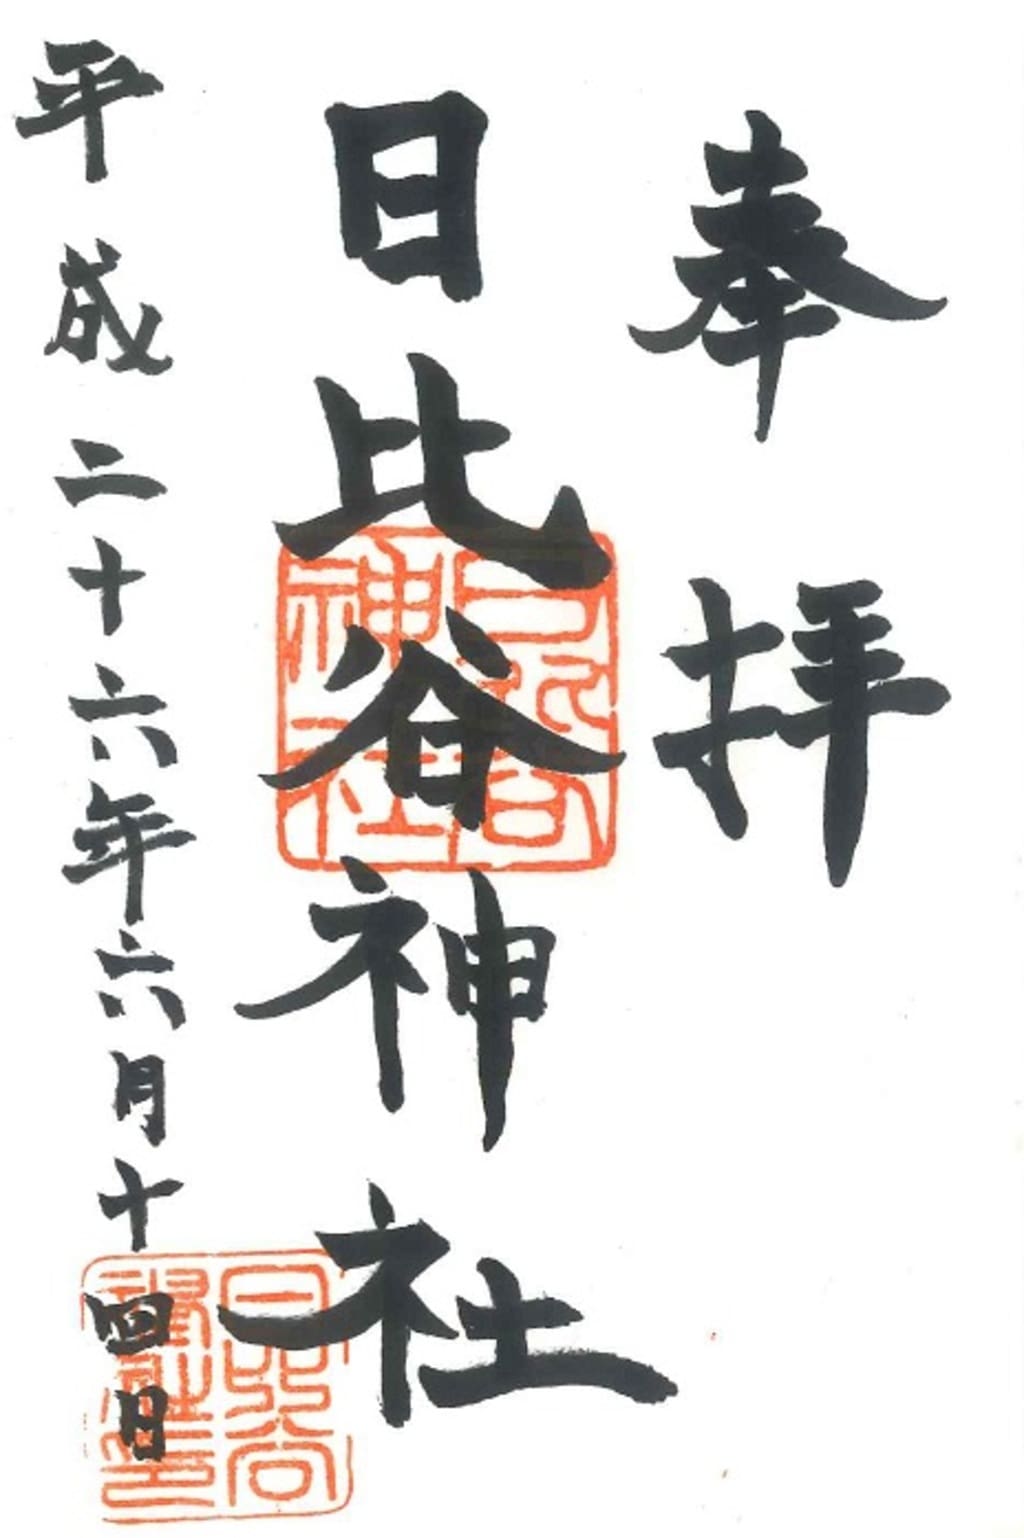 奉拝
日比谷神社
平成二十六年六月十四日
日比谷神社